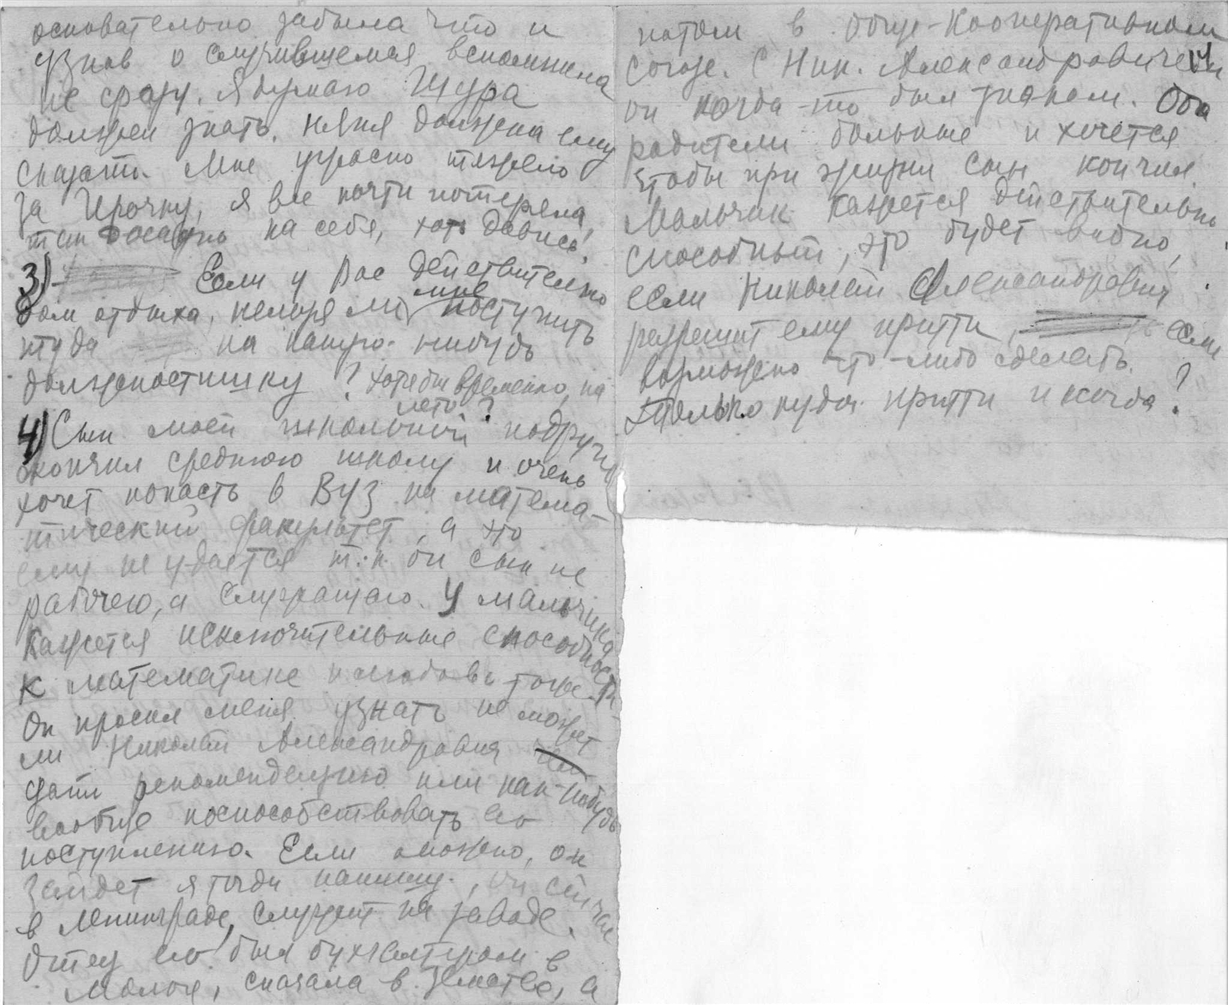 основательно забыла что и
узнав о случившемся вспомнила
не сразу. Я думаю Шура
должен знать. Няня должна ему
сказать. Мне ужасно тяжело
за Ирочку, я все почти потеряла,
так досадую на себя, хоть давись.
3) Если у Вас действительно
дом отдыха, нельзя ли мне поступить
туда на какую-нибудь
должностишку? хотя бы временно, на
лето?
4) Сын моей школьной подруги
окончил среднюю школу и очень
хочет попасть в ВУЗ на матема-
тический факультет, а это
ему не удается т.к. он сын не
рабочего, а служащего. У мальчика
кажется исключительные способности
к математике и любовь тоже.
Он просил меня узнать не может
ли Николай Александрович
дать рекомендацию или как-нибудь
вообще поспособствовать его
поступлению. Если можно, он
зайдет я тогда напишу, он сейчас
в Ленинграде, служит на заводе.
Отец его был бухгалтером в
Мологе, сначала в земстве, а
потом в Обще-Кооперативном
союзе. С Ник. Александровичем
он когда-то был знаком. Оба
родители больные и хочется
чтобы при жизни сын кончил.
Мальчик кажется действительно
способный, это будет видно,
если Николай Александрович
разрешит ему притти, если
возможно что-либо сделать.
Только куда притти и когда?